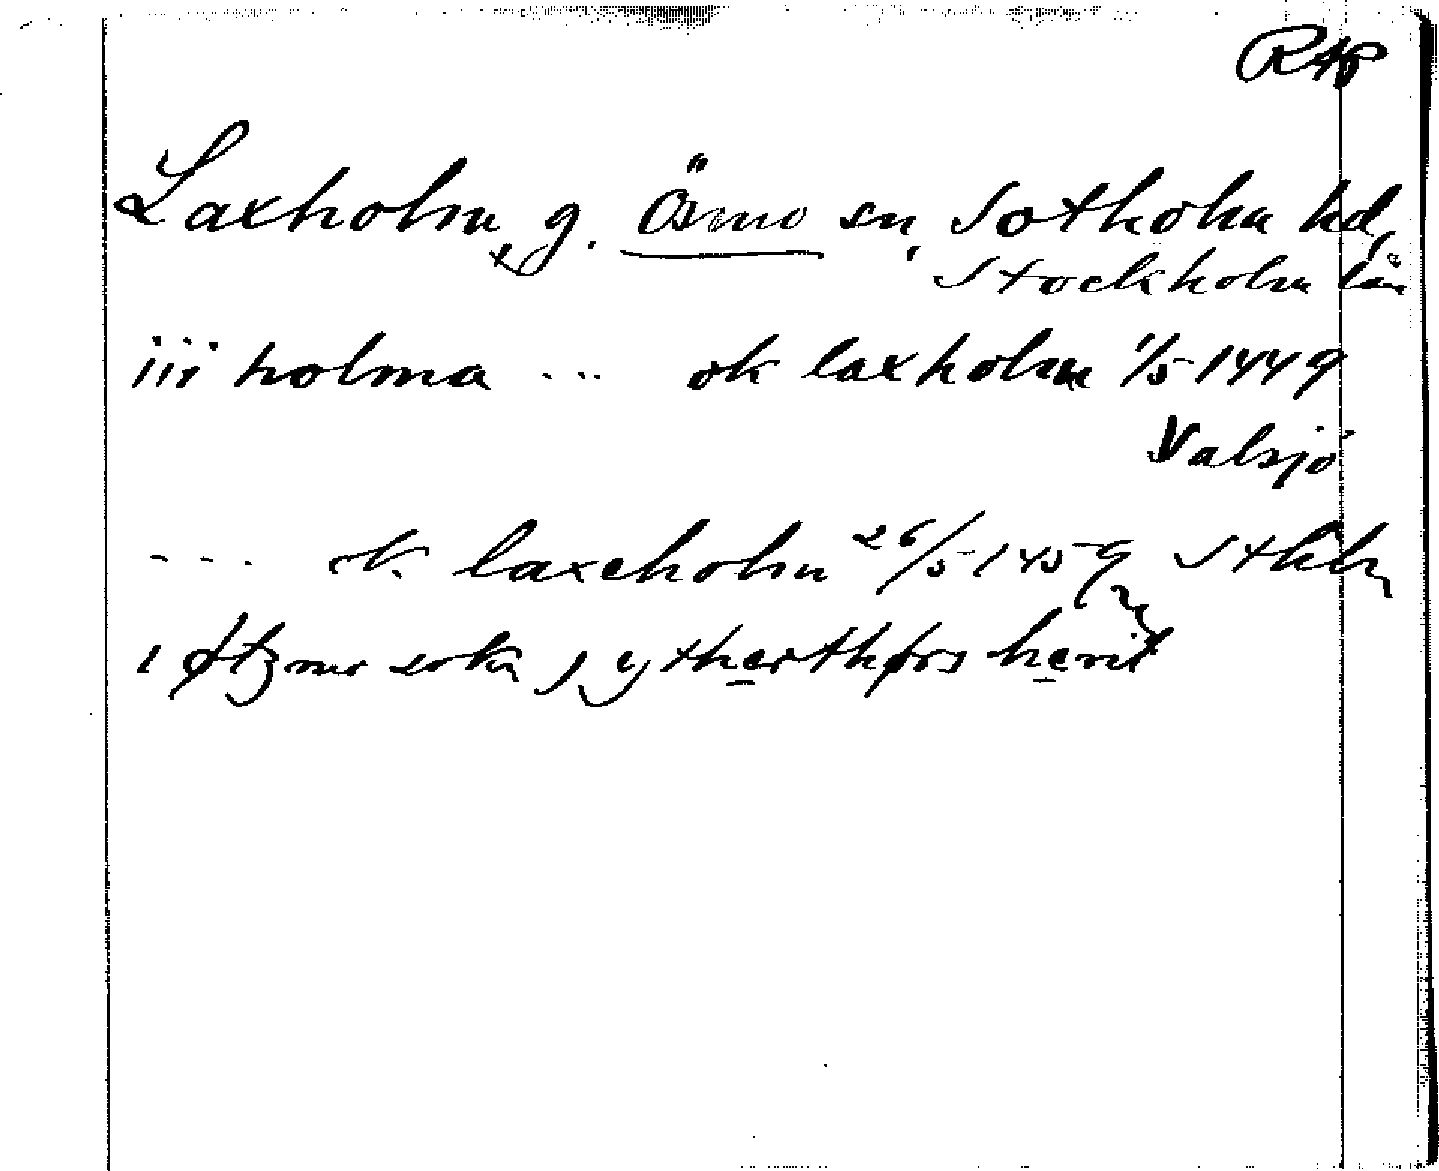 RAP
Laxholm, g. Ösmo sn, Sotholm hd,
Stockholm län
iii holma ... ok laxholm 1/5 1449
Valsjö
... ok laxeholm 26/5 1459 Sthlm
i sokn j ythersthørs herit